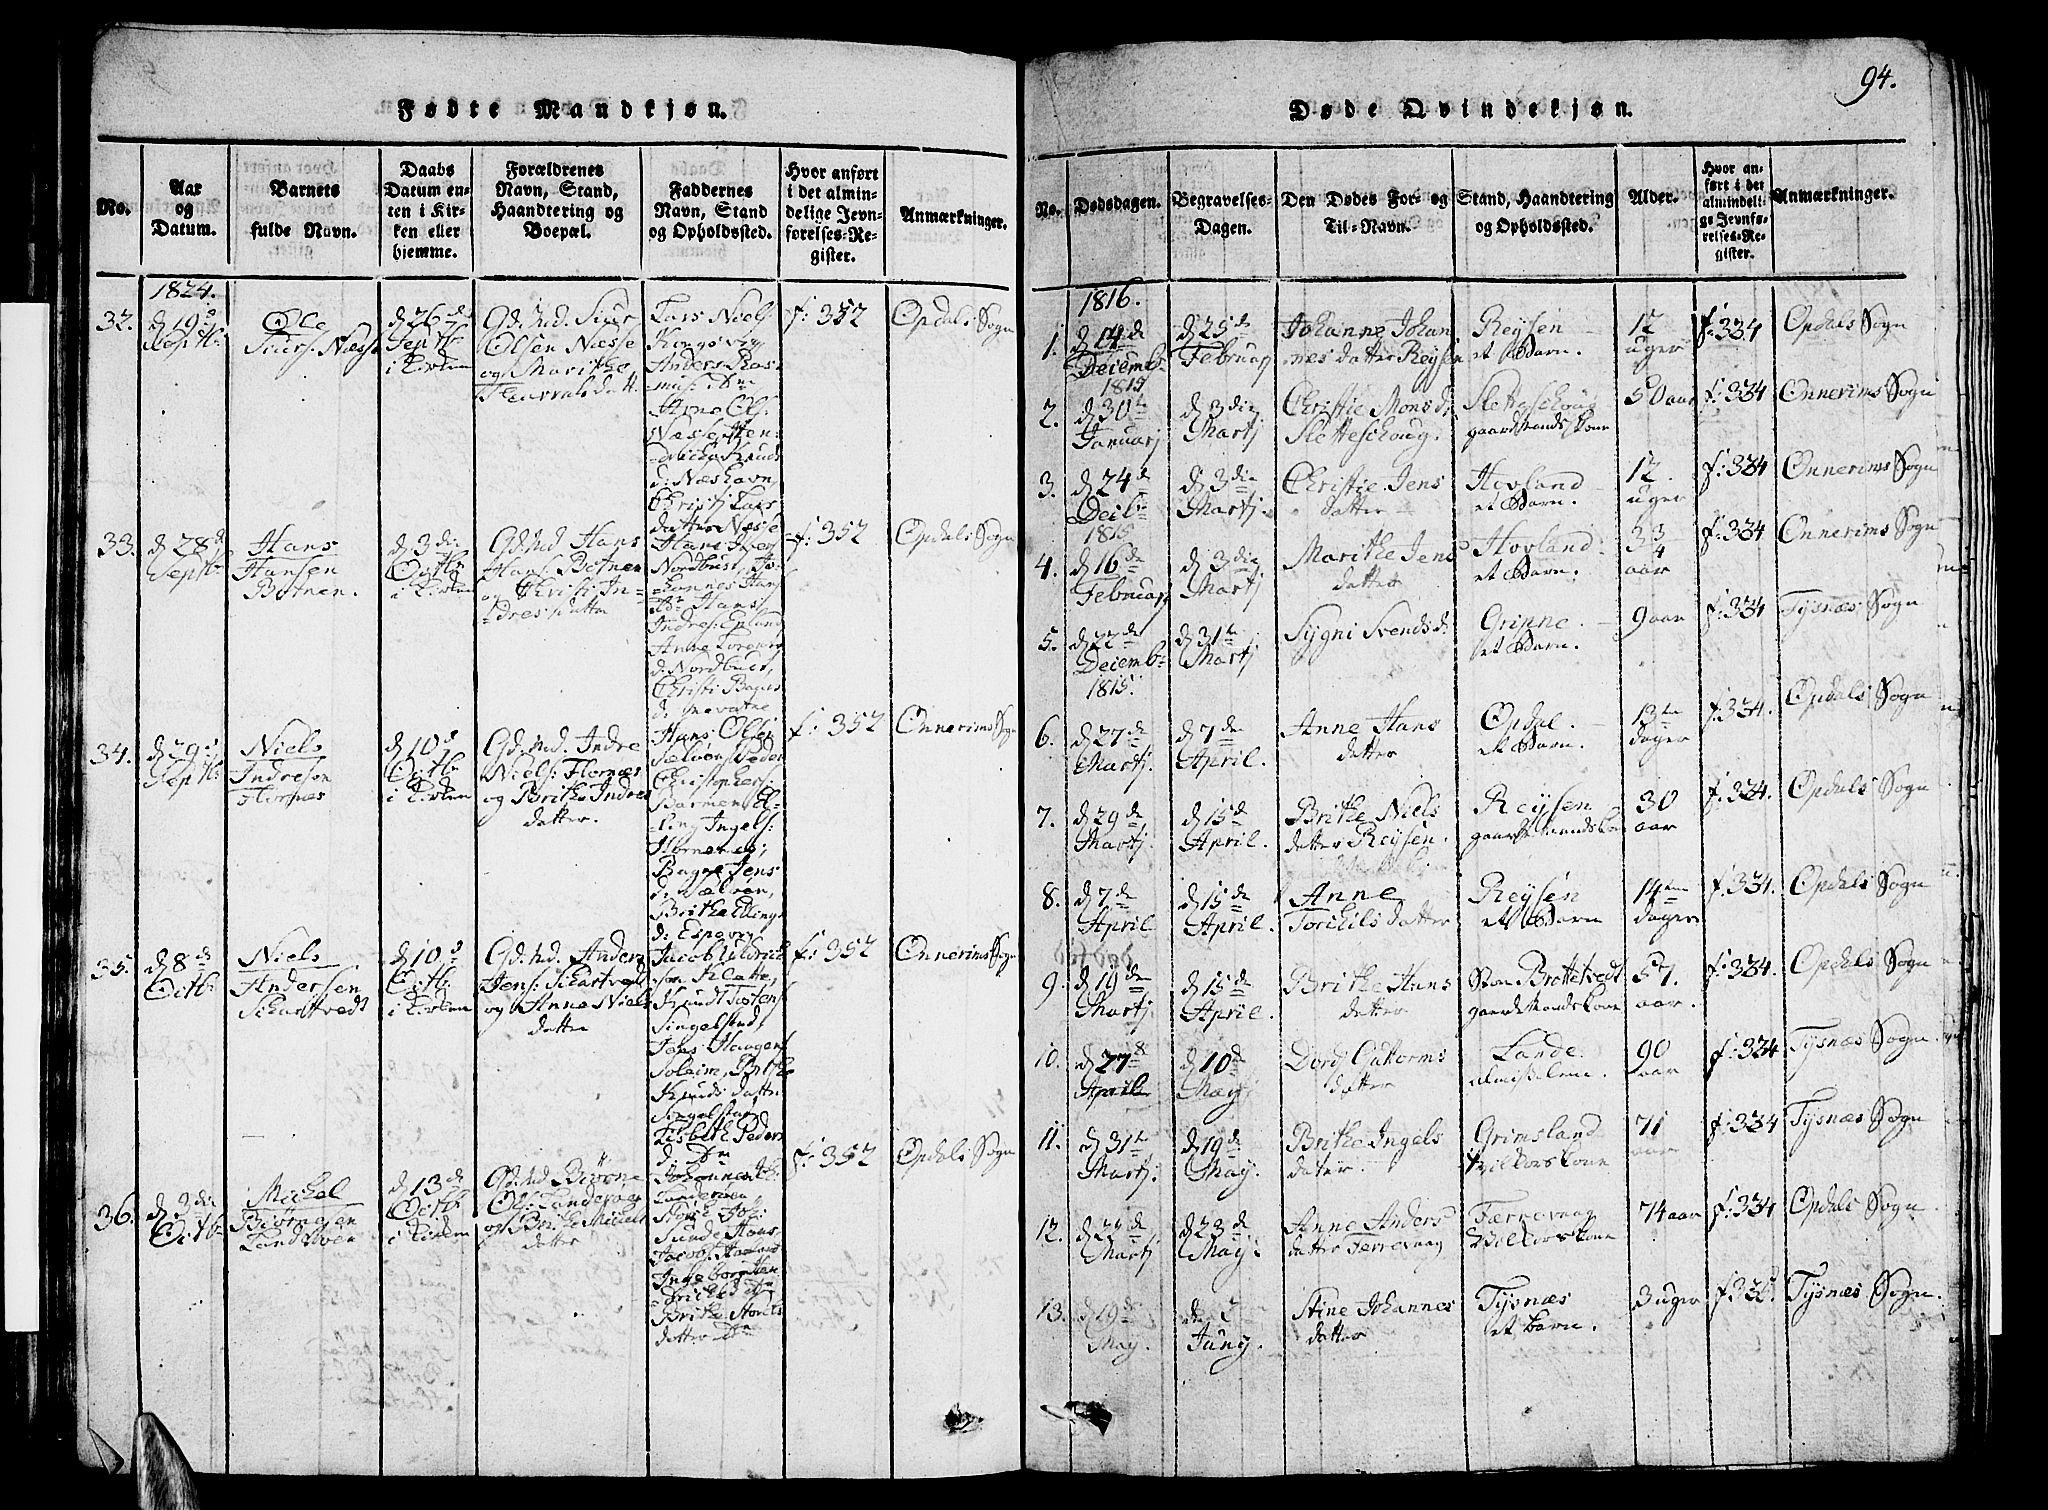 Fødte Mandkjøn.
No.
Aar
og
Datum.
Barnets
fulde Navn.
Daabs
Datum en-
ten i Kir-
ken eller
hjemme.
Forældrenes
Navn, Stand,
Haandtering og
Boepæl.
Faddernes
Navn, Stand
og Opholdssted.
Hvor anført
i det almin-
delige Jevn-
førelses-Re-
gister.
Anmærkninger.
1824.
32.
d 19d
Septbr
Ole
Siurs. Næsse
d 26de
Septbr
i Kirken
Gd. Md. Siur
Olsen Næsse
og Marithe
Lars Niels
Kongsvig
Anders Ras-
mus: Dm
Arne Ols:
Næsse
d: Næshavn,
Christi Lars
datter Næsse
f: 352
Opdals Sogn
33.
d 28d
Septbr
Hans
Hansen
Botnen.
d 3die
Octbr
i Kirken
Gd. Md Hans
Hans: Botnen
og Christi In-
dres datter
Hans Iver
Nordbust, Jo-
hannes Hans
Dm Hans
Indres:
Anne
d. Nordbust,
Christi Bagnes
f: 352
Opdals Sogn
34.
d 29d
Septbr
Niels
Indresen
Flornæs
d 10d
Octbr
i Kirken
Gd. Md. Indre
Niels: Flornæs
og Brithe Indres
datter.
Hans Olsen
Sælvøn, Peder
Christophers:
Barmen, El-
ling Ingels:
Bagne Jens
d. Sælvøn,
Brithe Ellings
d: Espevog
f: 352
Onnerims Sogn
35.
d 8de
Octbr
Niels
Andersen
Schartvedt
d 10d
Octbr
i Kirken
Gd. Md. Anders
Jens: Schartvedt
og Anne Niels
datter
Jacob Uldrich
søn Flatte,
Knudt Tosten
Singelstad,
Hans Haagens
Soleim, Brithe
Knuds datter
Singelstad
Lisbeth Peders
d. Dm
f: 352
Onnerims Sogn
36.
d 3die
Octbr
Michel
Biørnesen
Landrøen
d 13de
Octbr
i Kirken
Gd. Md Biørne
Ols: Landrøen
og Brithe Michels
datter
Johannes
Landrøen
Sunde Hans
Jacobs:
Ingeborg Hen
Brithe
datter Dm
f: 352
Opdals Sogn
94.
Døde Qvindekjøn.
No.
Dødsdagen.
Begravelses-
Dagen.
Den Dødes For- og
Til-Navn.
Stand, Haandtering
og Opholdssted.
Alder.
Hvor an-
ført i det
almindeli-
ge Jevnfø-
relses-Re-
gister.
Anmærkninger.
1816.
1.
d 14de
Decemb.
1815
d 25de
Februarj
Johanne Johan
nes datter Reysen
Reysen
et Barn.
12
uger
f: 334
Opdals Sogn
2.
d 30te
Januarj
d 3die
Martj
Christie Monsd:
Sletteschoug.
Sletteschoug
gaardmandskone
50 aar
f: 334
Onnerims Sogn
3.
d 24de
Decbr
1815
d 3die
Martj.
Christie Jens
datter
Hovland
et Barn.
12.
uger
f: 334
Onnerims Sogn
4.
d 16de
Februarj
d 3die
Martj
Marithe Jens
datter
Hovland
et Barn.
3 3/4
aar
f: 334
Onnerims Sogn
5.
d 22de
Decemb
1815.
d 31te
Martj
Sygni Svendsd.
Grinne.
et Barn.
9 aar
f: 334
Tysnæs Sogn
6.
d 27de
Martj.
d 7de
April.
Anne Hans
datter
Opdal.
et Barn.
13ten
dager
f: 334.
Opdals Sogn
7.
d 29de
Martj.
d 15de
April.
Brithe Niels
datter Reysen.
Reysen
gaardmandskone
30
aar
f: 334.
Opdals Sogn
8.
d 7de
April
d 15de
April.
Anne
Torchils datter
Reysen
et Barn
14ten
dager
f: 334.
Opdals Sogn
9.
d 19de
Martj.
d 15de
April.
Brithe Hans
datter
Brottetvedt
gaardmandskone
57.
aar.
f: 334.
Opdals Sogn
10.
d 27de
April
d 10de
May
Dordj Guttorms
datter
Lande.
almislem.
90
aar
f: 334
Tysnæs Sogn.
11.
d 31te
Martj.
d 19de
May.
Brithe Ingels
dater.
Grimsland
vilkorskone
71
aar
f: 334
Tysnæs Sogn
12.
d 22de
Martj
d 23de
May.
Anne Anders
datter Ferrevaag
Færrevaag
vilkorskone
74 aar
f: 334
Opdals Sogn.
13.
d 19de
May.
den 2
Junij.
Stine Johannes
datter
Tysnæs
et barn.
3 uger
f: 335.
Tysnæs Sogn.